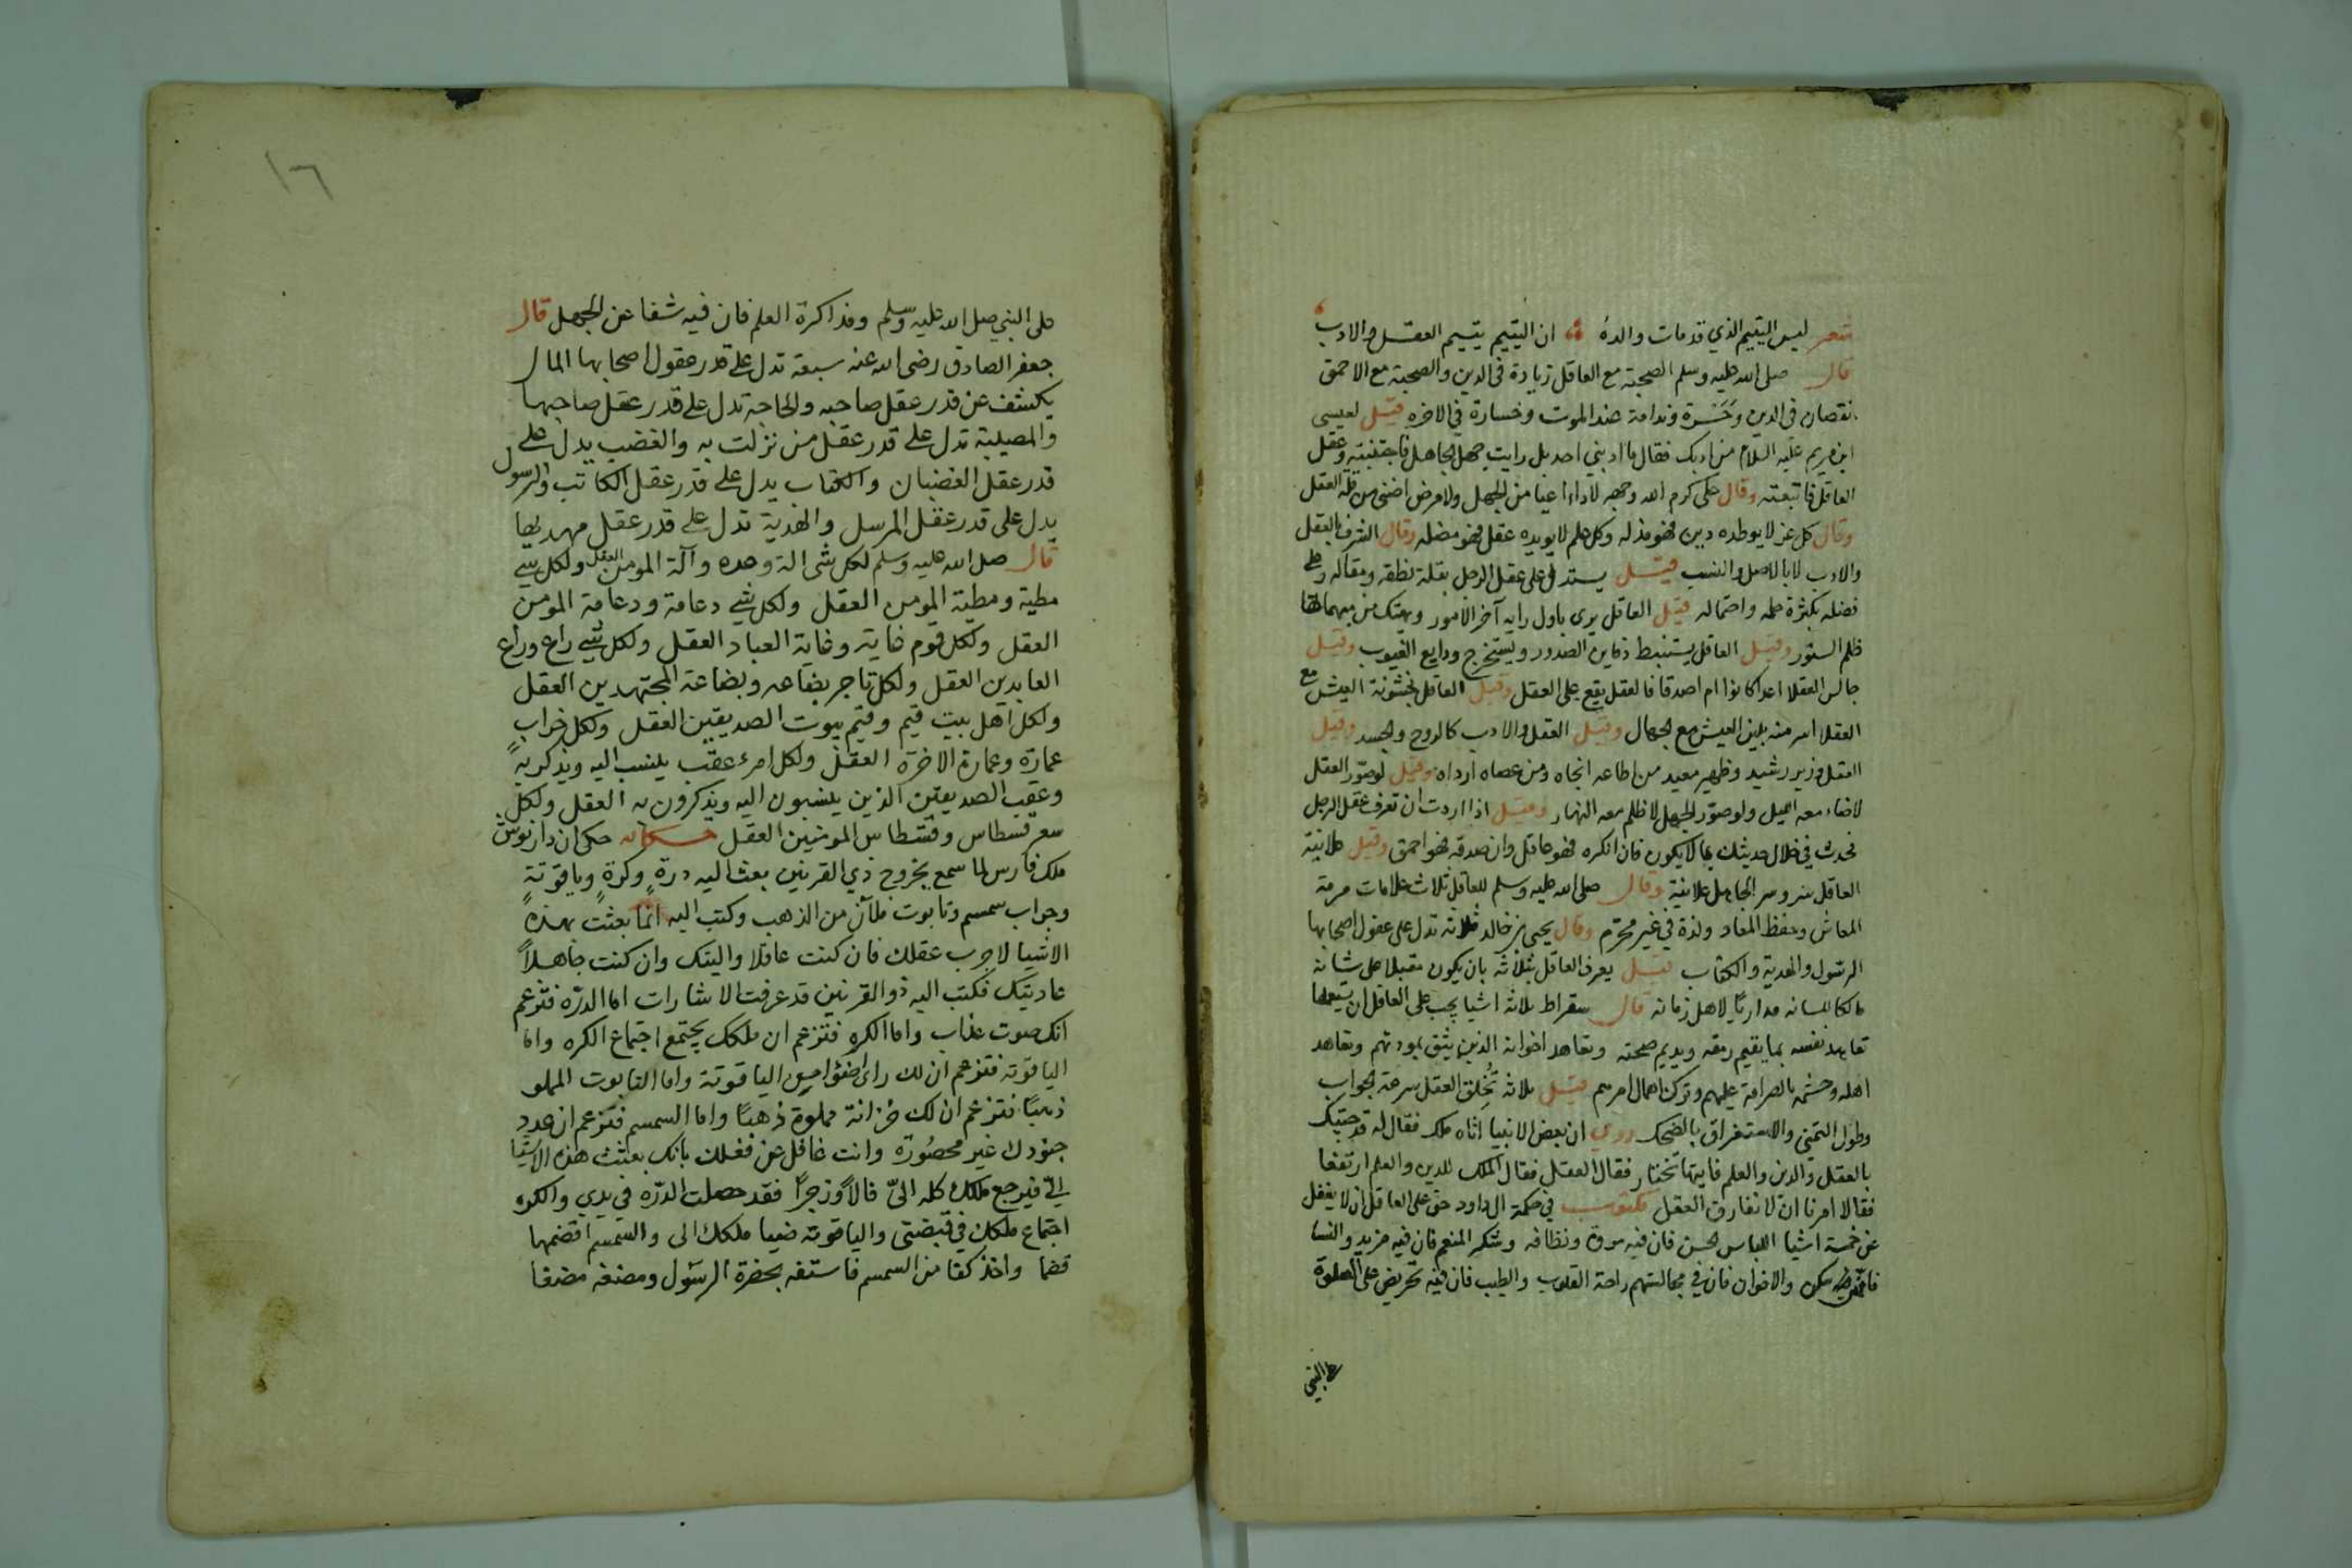 شعر ليس اليتيم الذي قد مات والده ان اليتيم يتيم العقل والادب
قال صلى الله عليه وسلم الصحبة مع العاقل زيادة في الدين والصحبة مع الاحمق
نقصان في الدين وحسرة وندامة عند الموت وخسارة في الاخرة قيل لعيسى
ابن مريم عليه السلام من ادبك فقال ما ادبني احد بل رايت جهل الجاهل فاجتنبته وعقل
العاقل فاتبعته وقال على كرم الله وجهه لا داء اعيا من الجهل ولا مرض اضنى من قلة العقل
وقال كل عز لا يوطده دين فهو مذله وكل علم لا يويده عقل فهو مضله وقال الشرف بالعقل
والادب لا بالاصل والنسب قيل يستدل على عقل الرجل بقلة نطقه ومقاله وعلى
فضله بكثرة حلمه واحتماله قيل العاقل يرى باول رايه آخر الامور ويهتك من مبهماتها
ظلم الستور وقيل العاقل يستنبط دفاين الصدور ويستخرج ودايع الغيوب وقيل
جالس العقلا اعدا كانوا ام اصدقا فالعقل يقع على العقل وقيل العاقل بخشونة العيش مع
العقلا اسر منه بلين العيش مع الجهال وقيل العقل والادب كالروح والجسد وقيل
العقل وزير رشيد وظهير معيد من اطاعه انجاه ومن عصاه ارداه وقيل لو صور العقل
لاضاء معه الليل ولو صور الجهل لاظلم معه النهار وقيل اذا اردت ان تعرف عقل الرجل
فحدث في خلال حديثك بما لا يكون فان انكره فهو عاقل وان صدقه فهو احمق وقيل علانية
العاقل سر وسر الجاهل علانية وقال صلى الله عليه وسلم للعاقل ثلاث علامات مرمة
المعاش وحفظ المعاد ولذة في غير محرم وقال يحيى بن خالد ثلاثه تدل على عقول اصحابها
الرسول والهدية والكتاب قيل يعرف العاقل بثلاثه بان يكون مقبلا على شانه
مالكا للسانه مداريا لاهل زمانه قال سقراط ثلاثه اشيا يجب على العاقل ان يستعملها
تعاهد نفسه بما يقيم رمقه ويديم صحته وتعاهد اخوانه الذين يثق بمودتهم وتعاهد
اهله وحشمه بالصرامة عليهم وترك اهمال امرهم قيل ثلاثه تخلق العقل سرعة الجواب
وطول التمني والاستغراق بالضحك روي ان بعض الانبيا اتاه ملك فقال له قد جيتك
بالعقل والدين والعلم فايها تختار فقال العقل فقال الملك للدين والعلم ارتفعا
فقالا امرنا ان لا نفارق العقل مكتوب في حكمة ال داود حق على العاقل ان لا يغفل
عن خمسة اشيا اللباس الحسن فان فيه مروة ونظافه وشكر المنعم فان فيه مزيد والنسا
والاخوان فان في مجالستهم راحة القلوب والطيب فان فيه تحريض على الصلوة
على النبي
١٦
على النبي صلى الله عليه وسلم ومذاكرة العلم فان فيه شفا عن الجهل قال
جعفر الصادق رضى الله عنه سبعة تدل على قدر عقول اصحابها المال
يكشف عن قدر عقل صاحبه والحاجة تدل على قدر عقل صاحبها
والمصيبة تدل على قدر عقل من نزلت به والغضب يدل على
قدر عقل الغضبان والكتاب يدل على قدر عقل الكاتب والرسول
يدل على قدر عقل المرسل والهدية تدل على قدر عقل مهديها
قال صلى الله عليه وسلم لكل شى الة وعده وآلة المومن العقل ولكل شي
مطية ومطية المومن العقل ولكل شي دعامة ودعامة المومن
العقل ولكل قوم غاية وغاية العباد العقل ولكل شي راع وراع
العابدين العقل ولكل تاجر بضاعه وبضاعة المجتهدين العقل
ولكل اهل بيت قيم وقيم بيوت الصديقين العقل ولكل خراب
عمارة وعمارة الاخرة العقل ولكل امرء عقب ينسب اليه ويذكر به
وعقب الصديقين الذين ينسبون اليه ويذكرون به العقل ولكل
سعر قسطاس وقسطاس المومنين العقل حكايه حكى ان داريوش
ملك فارس لما سمع بخروج ذي القرنين بعث اليه درة وكرة وياقوتة
وجراب سمسم وتابوت ملآن من الذهب وكتب اليه انما بعثت بهذه
الاشيا لاجرب عقلك فان كنت عاقلا واليتك وان كنت جاهلا
عاديتك فكتب اليه ذو القرنين قد عرفت الاشارات اما الدره فتزعم
انك صوت عذاب واما الكره فتزعم ان ملكك يجتمع اجتماع الكره واما
الياقوته فتزعم ان لك راى اضوا من الياقوتة واما التابوت المملو
ذهبا فتزعم ان لك خزانة مملوة ذهبا واما السمسم فتزعم ان عدد
جنودك غير محصورة وانت غافل عن فعلك بانك بعثت هذه الاشيا
الي فيرجع ملكك كله الي فالا وزجرا فقد حصلت الدره في يدي والكره
اجتماع ملكك في قبضتي والياقوته ضيا ملكك الى والسمسم اقضمها
قضما واخذ كفا من السمسم فاستفه بحضرة الرسول ومضغه مضغا